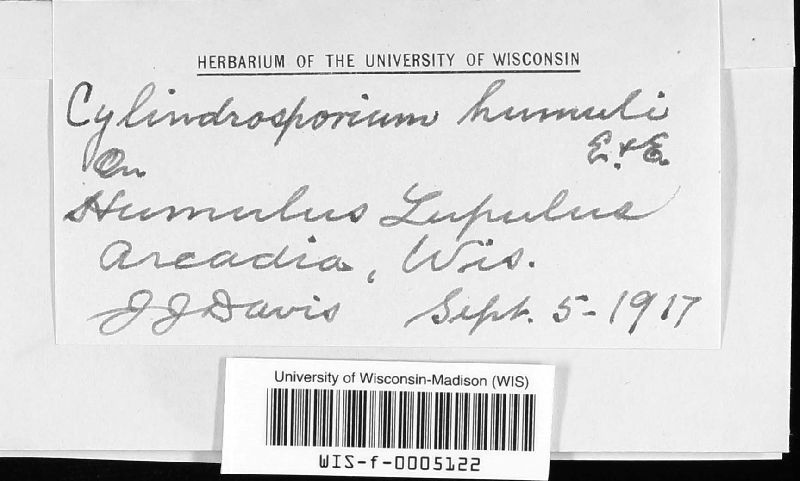 HERBARIUM OF THE UNIVERSITY OF WISCONSIN
Cylindrosporium humuli
E. & E.
On
Humulus Lupulus
Arcadia, Wis.
J J Davis Sept. 5-1917
University of Wisconsin-Madison (WIS)
WIS-f-0005122